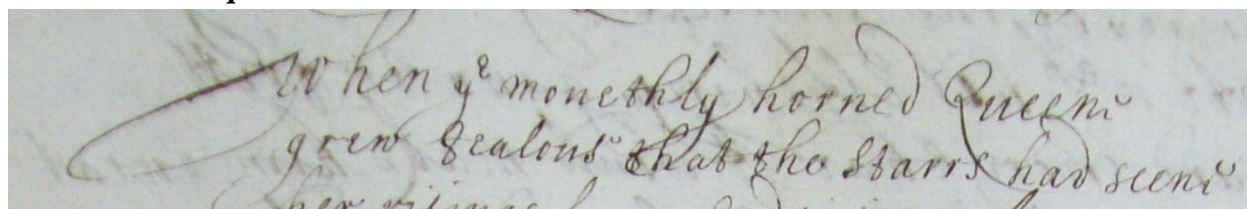 When yᵉ monethly horned Queene
grew Jealous that the Starrs had seene
her risinge